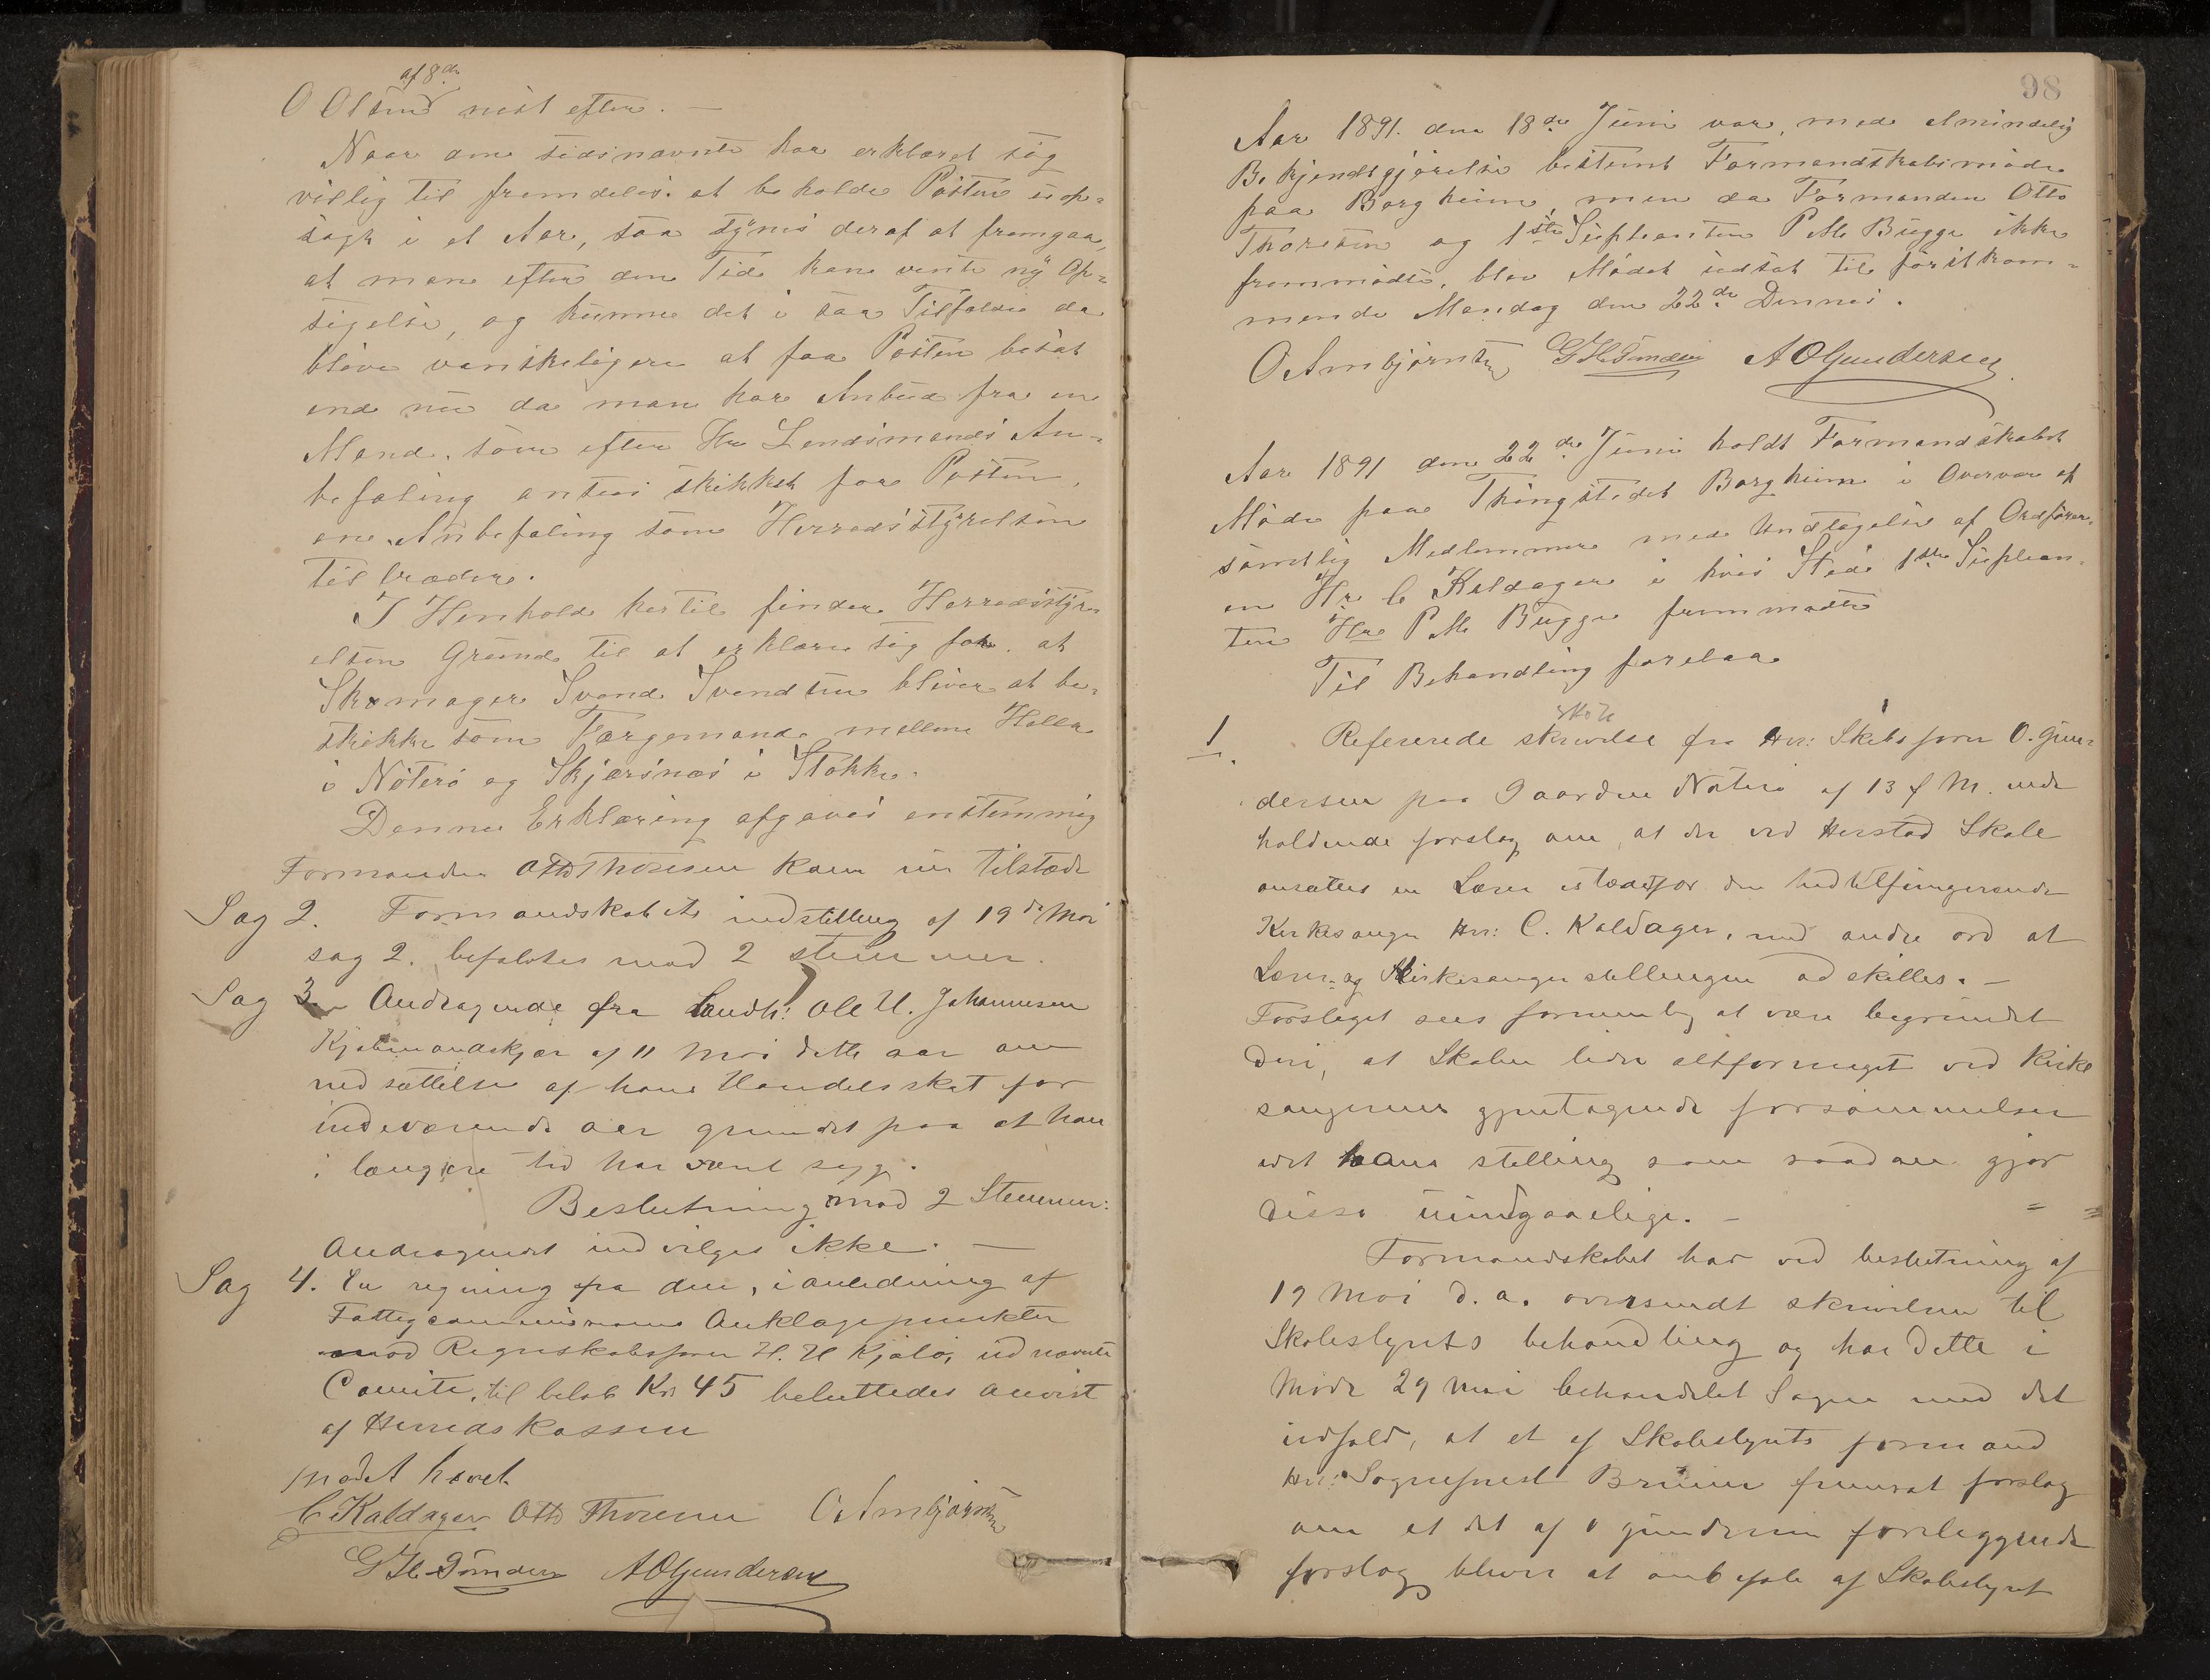 af 8de
O Olsens nest efter. —
Naar den sidsnævnte har erklæret sig
villig til fremdeles at beholde Posten uop=
sagt i et Aar, saa synes deraf at fremgaa,
at man efter den Tid kan vente ny Op=
sigelse, og kunne det i saa Tilfælde da
blive vanskeligere at faa Posten besat
end nu da man har Anbud fra en
Mand, som efter Hr Lensmands An=
befaling antages skikket for Posten,
en Anbefaling som Herredsstyrelsen
tiltræder.
I Henhold hertil finder Herredsstyr=
elsen Grund til at erklære sig for at
Skomager Svend Svendsen bliver at be=
skikke som Færgemand mellem Holla
i Nøterø og Skjærsnæs i Stokke.
Denne Erklæring afgaves enstemmig
Formanden Otto Thoresen kom nu tilstæde
Sag 2. Formandskabets indstilling af 19de Mai
sag 2. besluttes mod 2 stemmer.
Sag 3. Andragende fra Landh: Ole U. Johannesen
Kjøbmandskjær af 11 Mai dette aar om
nedsættelse af hans Handelsskat for
indeværende aar grundet paa at han
i længere tid har været syg.
Beslutning mod 2 Stemmer:
Andragendet indvilges ikke. —
Sag 4. En regning fra den, i anledning af
Fattigcommissionens Anklagepunkter
mod Regnskabsfører H. H Kjølø, udnævnte
Comite, til beløb Kr 45 besluttedes anvist
af Herredskassen
mødet hævet
C. Kaldager Otto Thoresen O. Ambjørnsen
G H Tømdsen A O Gundersen
98
Aar 1891. den 18de Juni var, med almindelig
Bekjendtgjørelse bestemt Formandskabsmøde
paa Borgheim, men da Formanden Otto
Thoresen og 1ste Supleanten P M Bugge ikke
fremmødte, blev Mødet udsat til førstkom=
mende Mandag den 22de Dennes.
O Ambjørnsen G H Tømdsen A O Gundersen
Aar 1891 den 22de Juni holdt Formandskabet
Møde paa Thingstedet Borgheim i Overvær af
samtlig Medlemmer med Undtagelse af Ordfører=
en Hr C Kaldager i hvis Sted 1ste Suplean=
ten Hr P M Bugge fremmødte
Til Behandling forelaa
1. Refererede skrivelse fra Hrr: Skibsfører O. Gun=
dersen paa Gaarden Nøterø af 13 f M. inde
holdende forslag om, at der ved Herstad Skole
ansættes en Lærer istædetfor den hidtilfungerende
Kirkesanger Hrr: C. Kaldager, med andre ord at
Lærer= og Kirkesanger stellingen adskilles. —
Forslaget sees fornemlig at være begrundet
deri, at Skolen lider altformeget ved Kirke
sangerens gjentagende forsømmelser
idet hans stelling som saadan gjør
disse uundgaaelige. —
Formandskabet har ved beslutning af
19 Mai d. a. oversendt skrivelsen til
Skolestyrets behandling og har dette i
Møde 29 Mai behandlet Sagen med det
udfald, at et af Skolestyrets formand
Hrr: Sogneprest Bruun fremsat forslag
om at det af O Gundersen foreliggende
forslag bliver at anbefale af Skolestyret